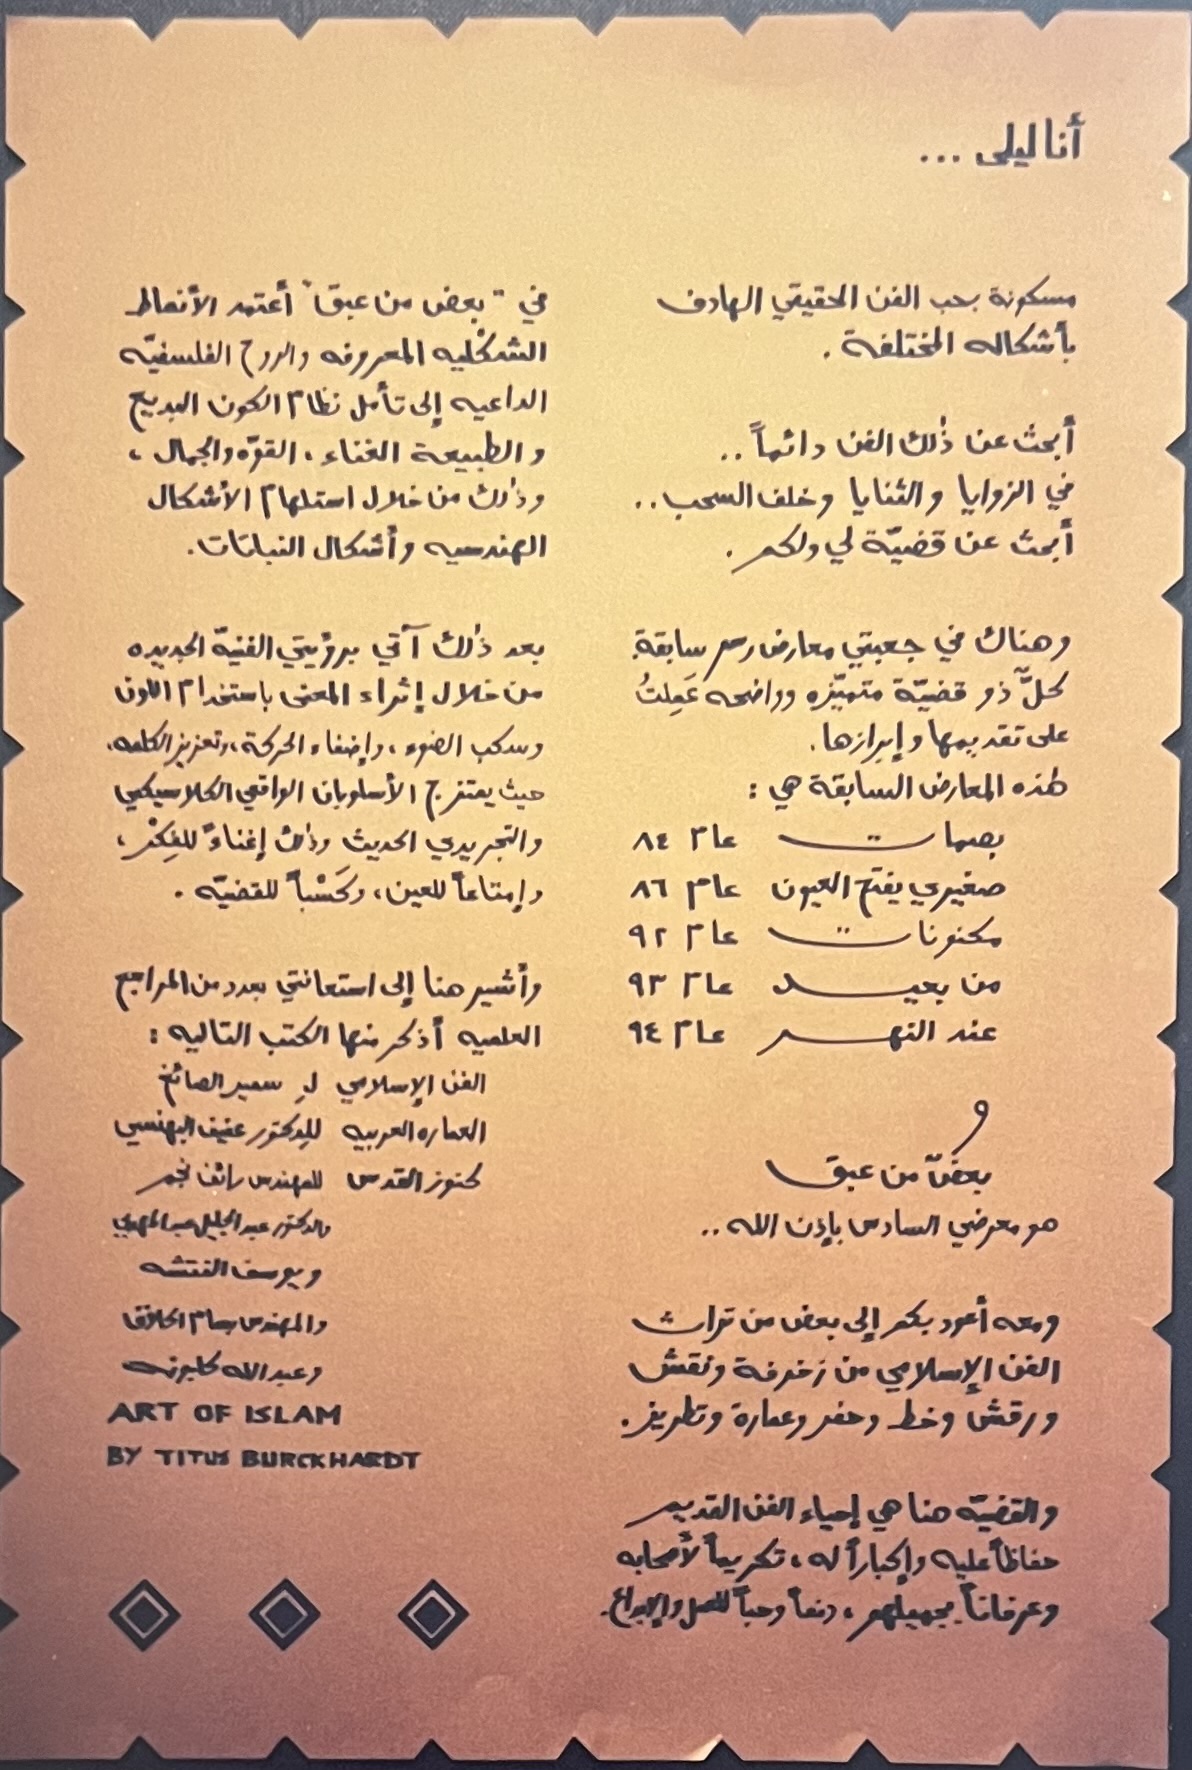 أنا ليلى ...
مسكونة بحب الفن الحقيقي الهادف
بأشكاله المختلفة .
أبحث عن ذلك الفن دائماً ..
في الزوايا والثنايا وخلف السحب ..
أبحث عن قضيّة لي ولكم .
وهناك في جعبتي معارض رسم سابقة
كلٌّ ذو قضيّة متميّزه وواضحه عَمِلتُ
على تقديمها وإبرازها .
هذه المعارض السابقة هي :
بصمات عام ٨٤
صغيري يفتح العيون عام ٨٦
مكنونات عام ٩٢
من بعيد عام ٩٣
عند النهر عام ٩٤
و
بعضٌ من عبق
هو معرضي السادس بإذن الله ..
ومعه أعود بكم إلى بعض من تراث
الفن الإسلامي من زخرفة ونقش
ورقش وخط وحفر وعمارة وتطريز .
والقضيّه هنا هي إحياء الفن القديم
حفاظاً عليه وإكباراً له ، تكريماً لأصحابه
وعرفاناً بجميلهم ، دفعاً وحباً للعمل والإبداع .
في " بعض من عبق " أعتمد الأنماط
الشكليه المعروفه والروح الفلسفيّه
الداعيه إلى تأمل نظام الكون البديع
والطبيعة الغناء ، القوّه والجمال ،
وذلك من خلال استلهام الأشكال
الهندسيه وأشكال النباتات .
بعد ذلك آتي برؤيتي الفنيّة الجديده
من خلال إثراء المعنى باستخدام اللون
وسكب الضوء ، وإضفاء الحركة ، وتعزيز الكلمه ،
حيث يمتزج الأسلوبان الواقعي الكلاسيكي
والتجريدي الحديث وذلك إغناءً للفِكْر ،
وإمتاعاً للعين ، وكَسْباً للقضيّه .
وأشير هنا إلى استعانتي بعدد من المراجع
العلميه أذكر منها الكتب التاليه :
الفن الإسلامي لِ سمير الصائغ
العماره العربيه للدكتور عفيف البهنسي
كنوز القدس للمهندس رائف نجم
والدكتور عبد الجليل عبد المهدي
ويوسف النتشه
والمهندس بسام الحلاق
وعبد الله كلبونه
ART OF ISLAM
BY TITUS BURCKHARDT